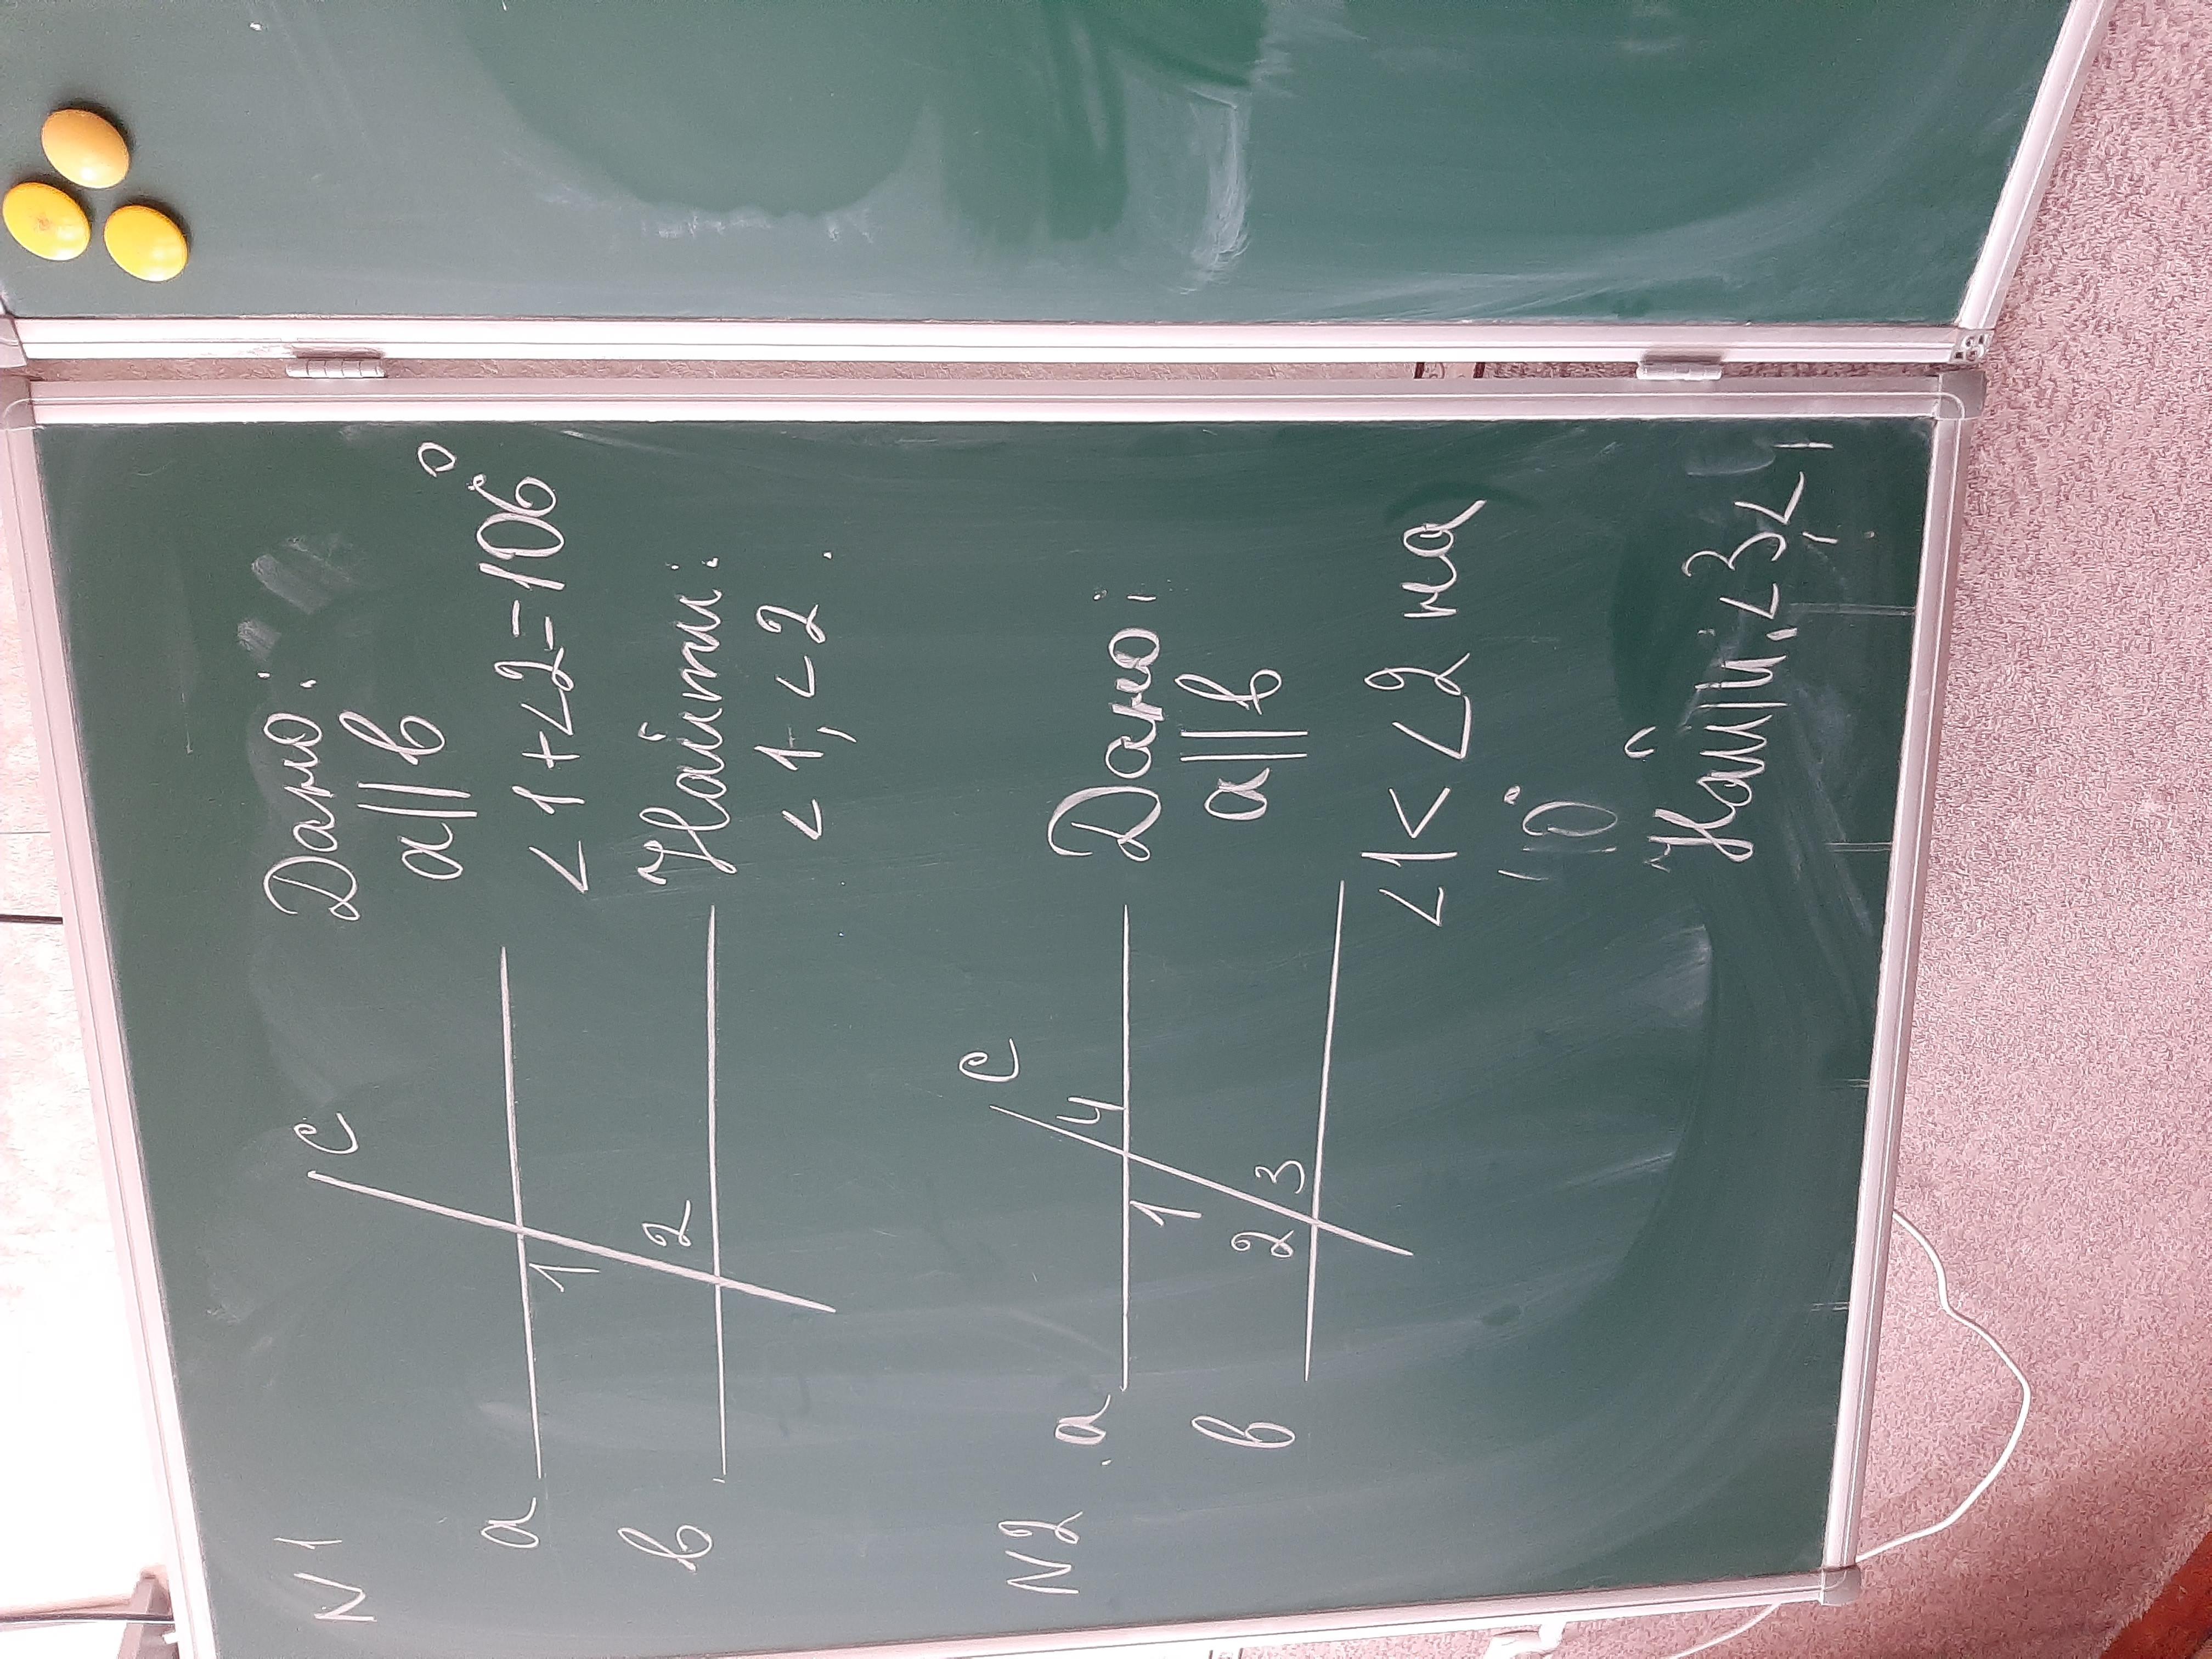 N 1
c
a
1
2
b
Дано:
a || b
<1+<2=106°
Найти:
<1, <2.
N2
c
a
4
1
2 3
b
Дано:
a || b
<1 < <2 на
10°
Найти: <3,<